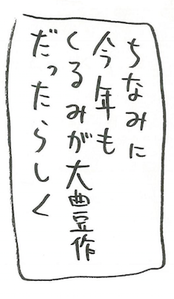 ちなみに
今年も
くるみが大豊作
だったらしく